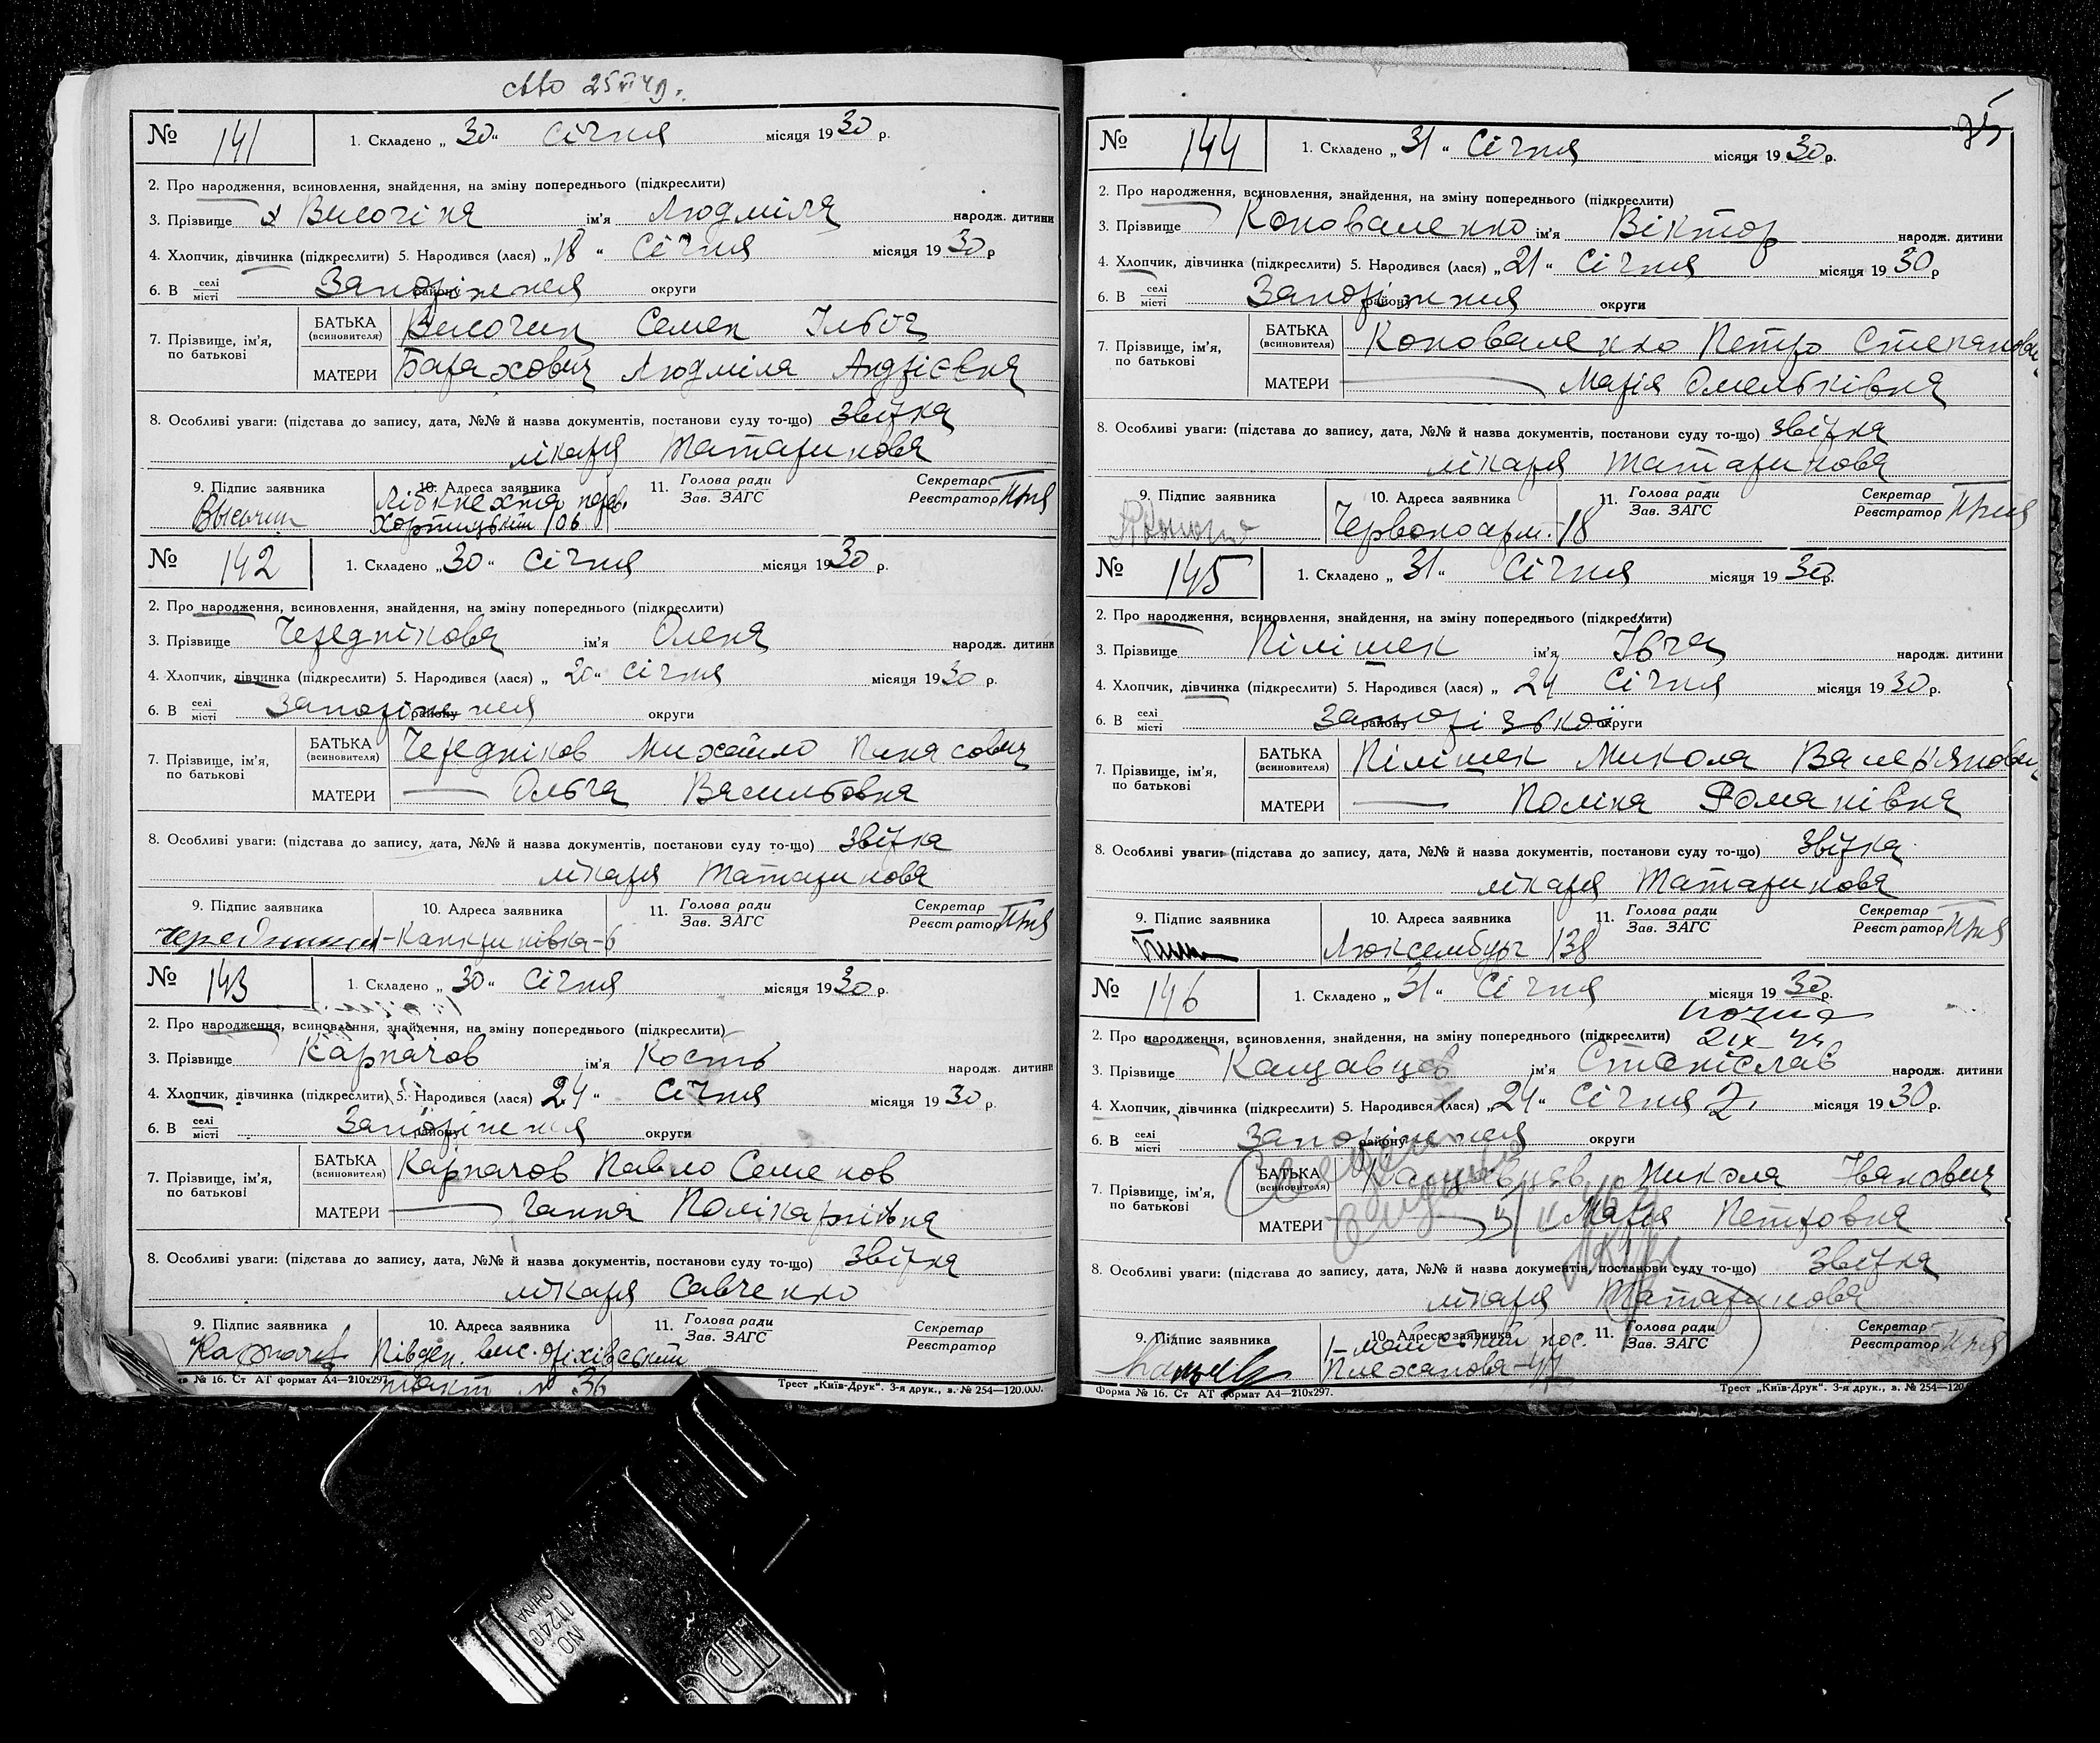 25 VI 49.
№ 141
1. Складено „30“ Січня місяця 1930 р.
2. Про народження, всиновлення, знайдення, на зміну попереднього (підкреслити)
3. Прізвище Височіна ім'я Людміла народж. дитини
4. Хлопчик, дівчинка (підкреслити) 5. Народився (лася) „18“ Січня місяця 1930 р
6. В селі місті Запоріжжя району округи
7. Прізвище, ім'я, по батькові
БАТЬКА (всиновителя) Височин Семен Ільїч
МАТЕРИ Людміла Андрієвна
8. Особливі уваги: (підстава до запису, дата, №№ й назва документів, постанови суду то-що) Звітка
лікаря Татаринова
9. Підпис заявника 10. Адреса заявника 11. Голова ради Зав. ЗАГС Секретар Реєстратор
Высочин Лібкнехта
Хортицький 106
№ 142
1. Складено „30“ Січня місяця 1930 р.
2. Про народження, всиновлення, знайдення, на зміну попереднього (підкреслити)
3. Прізвище Чередрікова ім'я Олена народж. дитини
4. Хлопчик, дівчинка (підкреслити) 5. Народився (лася) „20“ Січня місяця 1930 р.
6. В селі місті Запоріжжя району округи
7. Прізвище, ім'я, по батькові
БАТЬКА (всиновителя) Чередніков Михайло
МАТЕРИ — Ольга Васильовна
8. Особливі уваги: (підстава до запису, дата, №№ й назва документів, постанови суду то-що) Звітка
лікаря Татаринова
9. Підпис заявника 10. Адреса заявника 11. Голова ради Зав. ЗАГС Секретар Реєстратор
№ 143
1. Складено „30“ Січня місяця 1930 р.
2. Про народження, всиновлення, знайдення, на зміну попереднього (підкреслити)
3. Прізвище Карпачов ім'я Кость народж. дитини
4. Хлопчик, дівчинка (підкреслити) 5. Народився (лася) 24“ Січня місяця 1930 р.
6. В селі місті Запоріжжя району округи
7. Прізвище, ім'я, по батькові
БАТЬКА (всиновителя) Карпачов Павло Семенов
МАТЕРИ — Ганна Полікарпівна
8. Особливі уваги: (підстава до запису, дата, №№ й назва документів, постанови суду то-що) Звітка
лікаря Савченко
9. Підпис заявника 10. Адреса заявника 11. Голова ради Зав. ЗАГС Секретар Реєстратор
Карпачов Півден. вис. Оріхівський
тракт № 36
№ 16. Ст АТ формат А4—210х297. Трест „Київ-Друк“. 3-я друк., в. № 254—120.000.
75
№ 144
1. Складено „31“ Січня місяця 1930 р.
2. Про народження, всиновлення, знайдення, на зміну попереднього (підкреслити)
3. Прізвище Коноваленко ім'я Віктор народж. дитини
4. Хлопчик, дівчинка (підкреслити) 5. Народився (лася) „21“ Січня місяця 1930 р
6. В селі місті Запоріжжя району округи
7. Прізвище, ім'я, по батькові
БАТЬКА (всиновителя) Коноваленко Петро Степанович
МАТЕРИ — Марія Омельківна
8. Особливі уваги: (підстава до запису, дата, №№ й назва документів, постанови суду то-що) Звітка
лікаря Татаринова
9. Підпис заявника 10. Адреса заявника 11. Голова ради Зав. ЗАГС Секретар Реєстратор
Червоноарм.-18
№ 145
1. Складено „31“ Січня місяця 1930 р.
2. Про народження, всиновлення, знайдення, на зміну попереднього (підкреслити)
3. Прізвище Пілішек ім'я народж. дитини
4. Хлопчик, дівчинка (підкреслити) 5. Народився (лася) „24 Січня місяця 1930 р.
6. В селі місті Запорізької району округи
7. Прізвище, ім'я, по батькові
БАТЬКА (всиновителя) Пілішек Микола Валер'янович
МАТЕРИ — Поліна Романівна
8. Особливі уваги: (підстава до запису, дата, №№ й назва документів, постанови суду то-що) Звітка
лікаря Татаринова
9. Підпис заявника 10. Адреса заявника 11. Голова ради Зав. ЗАГС Секретар Реєстратор
Люксембург 138
№ 146
1. Складено „31“ Січня місяця 1930 р.
2. Про народження, всиновлення, знайдення, на зміну попереднього (підкреслити)
3. Прізвище Кащавцев ім'я Станіслав народж. дитини
4. Хлопчик, дівчинка (підкреслити) 5. Народився (лася) „24“ Січня місяця 1930 р.
6. В селі місті Запоріжжя району округи
7. Прізвище, ім'я, по батькові
БАТЬКА (всиновителя) Кащавцев Микола Іванович
МАТЕРИ — Марія Петровна
8. Особливі уваги: (підстава до запису, дата, №№ й назва документів, постанови суду то-що) Звітка
лікаря Татаринова
9. Підпис заявника 10. Адреса заявника 11. Голова ради Зав. ЗАГС Секретар Реєстратор
1-майський пос.
Плеханова-47
Форма № 16. Ст АТ формат А4—210х297. Трест „Київ-Друк“. 3-я друк., в. № 254—120
NO. 1124C
CHINA